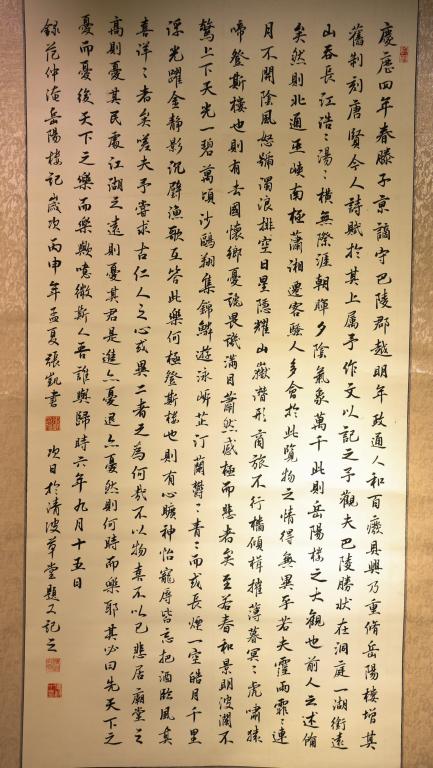 慶歷四年春滕子京謫守巴陵郡越明年政通人和百廢具興乃重脩岳陽樓增其
舊制刻唐賢今人詩賦於其上属予作文以記之予觀夫巴陵勝狀在洞庭一湖銜遠
山吞長江浩〻湯〻橫無際涯朝暉夕陰氣象萬千此則岳陽樓之大觀也前人之述備
矣然則北通巫峽南極瀟湘遷客騷人多會於此覽物之情得無異乎若夫霪雨霏〻連
月不開陰風怒號濁浪排空日星隱耀山嶽潛形商旅不行檣傾楫摧薄暮冥〻虎嘯猿
啼登斯樓也則有去國懷鄉憂讒畏譏滿目蕭然感極而悲者矣至若春和景明波瀾不
驚上下天光一碧萬頃沙鷗翔集錦鱗游泳岸芷汀蘭鬱〻青〻而或長煙一空皓月千里
浮光躍金靜影沉璧漁歌互答此樂何極登斯樓也則有心曠神怡寵辱皆忘把酒臨風其
喜洋〻者矣嗟夫予嘗求古仁人之心或異二者之為何哉不以物喜不以己悲居廟堂之
高則憂其民處江湖之遠則憂其君是進亦憂退亦憂然則何時而樂耶其必曰先天下之
憂而憂後天下之樂而樂歟噫微斯人吾誰與歸時六年九月十五日
錄范仲淹岳陽樓記歲次丙申年孟夏張凱書 次日於清波草堂題又記之